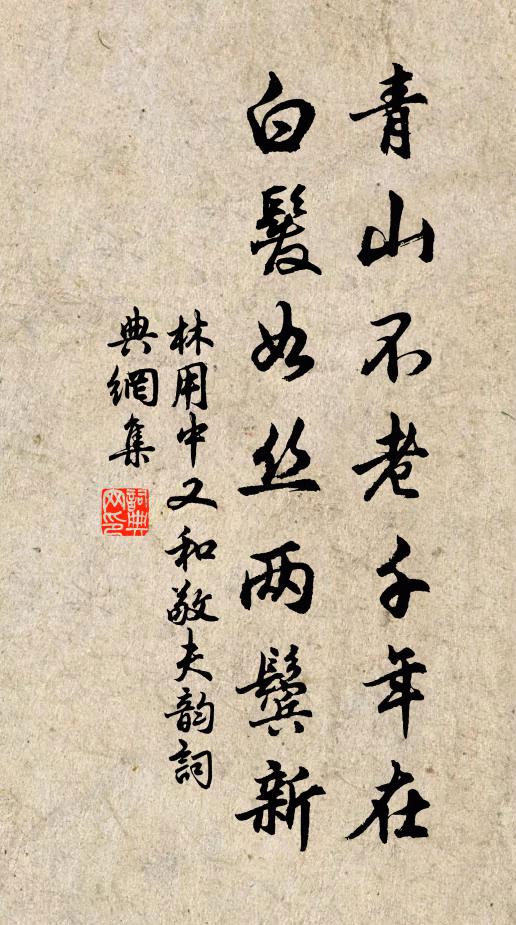 青山不老千年在
白髮如丝两鬓新
林用中又和敬夫韵詞
典網集
詞典网印